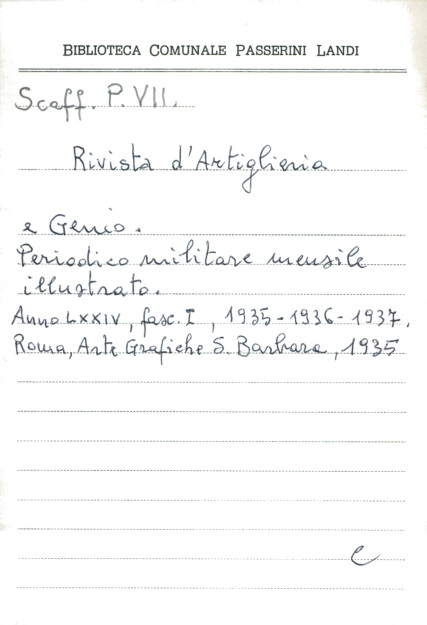 BIBLIOTECA COMUNALE PASSERINI LANDI
Scaff. P. VII.
Rivista d'Artiglieria
e Genio.
Periodico militare mensile
illustrato.
Anno LXXIV, fasc. I, 1935-1936-1937.
Roma, Arte Grafiche S. Barbara, 1935
e